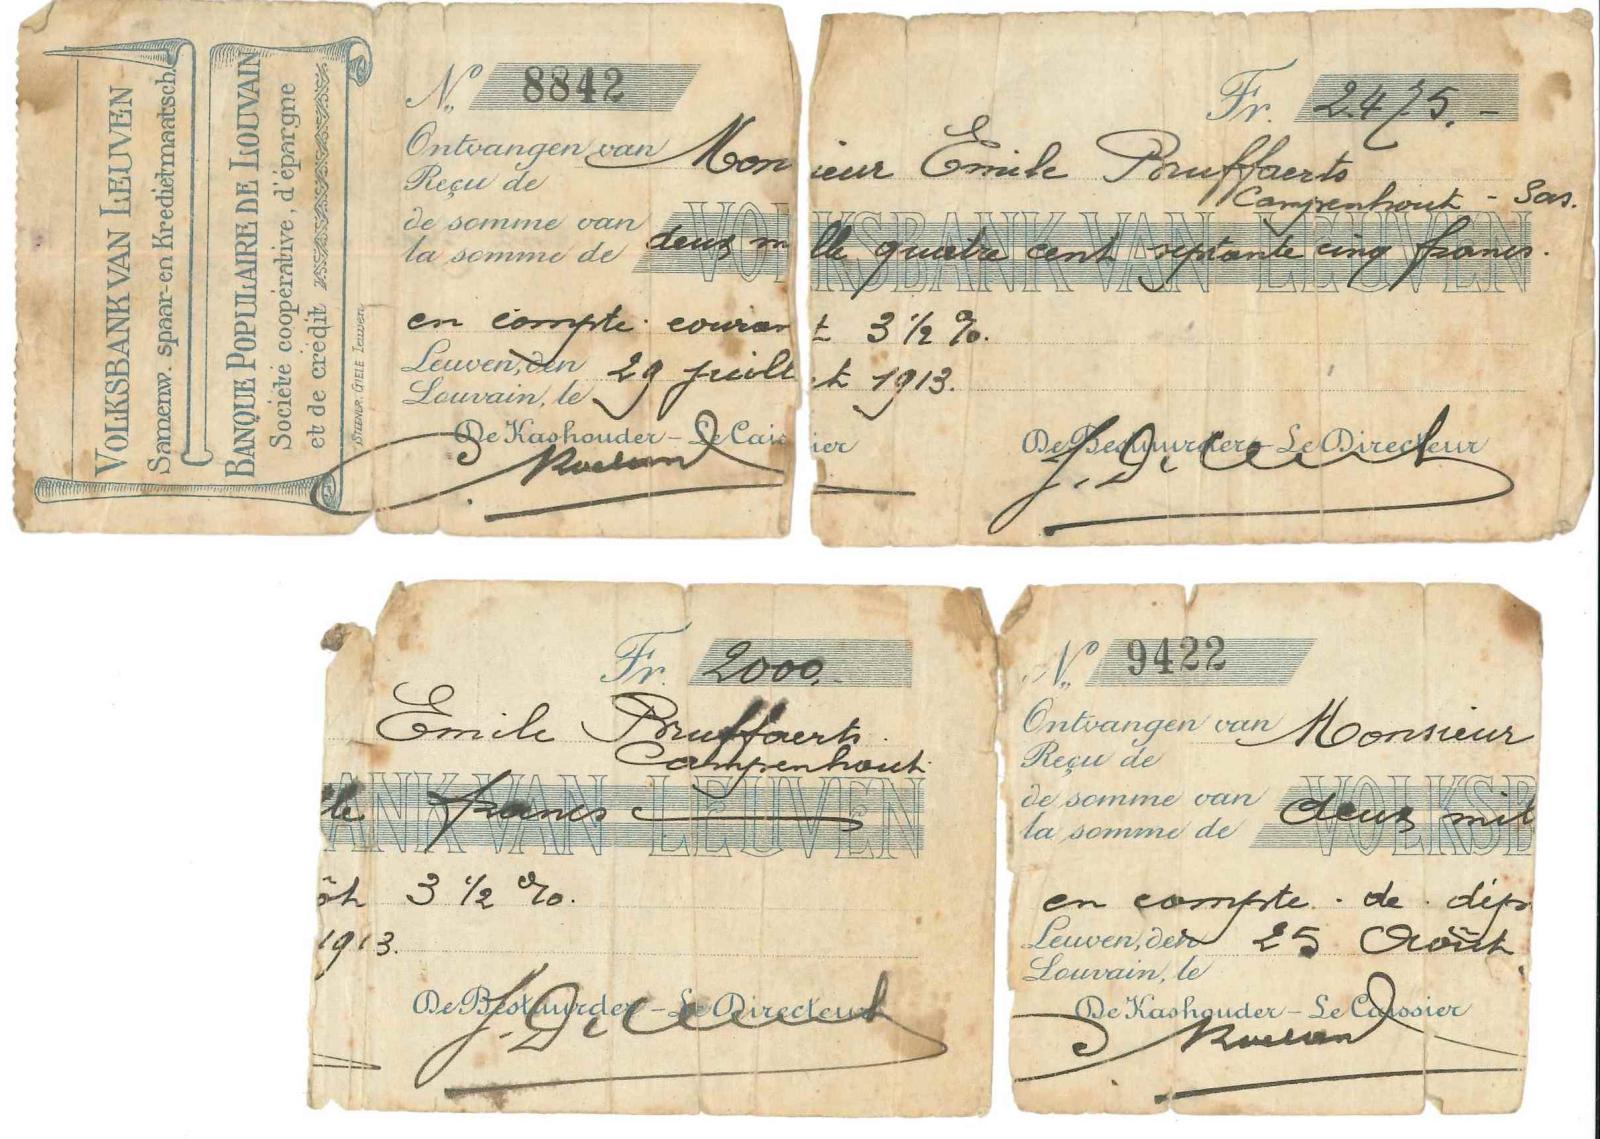 VOLKSBANK VAN LEUVEN
Samenw. spaar-en Kredietmaatsch.
BANQUE POPULAIRE DE LOUVAIN
Société coopérative, d'épargne
et de crédit
STEENDR. GIELE Leuven.
N° 8842
Ontvangen van Mon
Reçu de
de somme van VOL
la somme de deux m
en compte couran
Leuven, den 29 juill
Louvain, le
De Kashouder – Le Cais
Fr. 2475.-
sieur Emile Bruffaerts
Campenhout - Sas.
KSBANK VAN LEUVEN
lle quatre cent septante cinq francs.
t 3 1/2 %.
et 1913.
sier
De Bestuurder – Le Directeur
Fr. 2000.-
Emile Bruffaerts.
Campenhout.
ANK VAN LEUVEN
le francs
ôt 3 1/2 %.
1913.
De Bestuurder – Le Directeur
N° 9422
Ontvangen van Monsieur
Reçu de
de somme van VOLKSB
la somme de deux mil
en compte de dép
Leuven, den 25 Août
Louvain, le
De Kashouder – Le Caissier